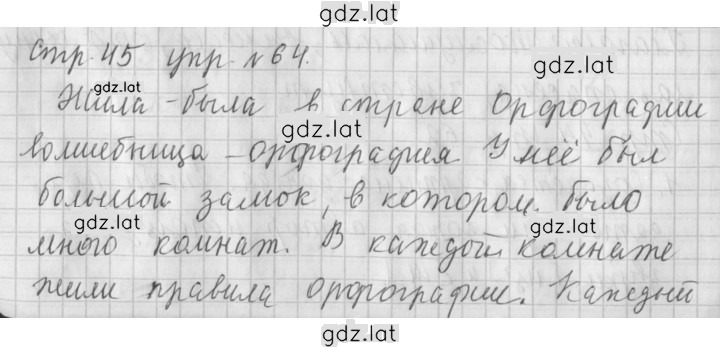 gdz.lat
Стр. 45 упр. №64.
gdz.lat
gdz.lat
Жила-была в стране Орфографии
gdz.lat
волшебница - орфография. У неё был
большой замок, в котором было
gdz.lat
gdz.lat
много комнат. В каждой комнате
gdz.lat
жили правила орфографии. Каждый
gdz.lat